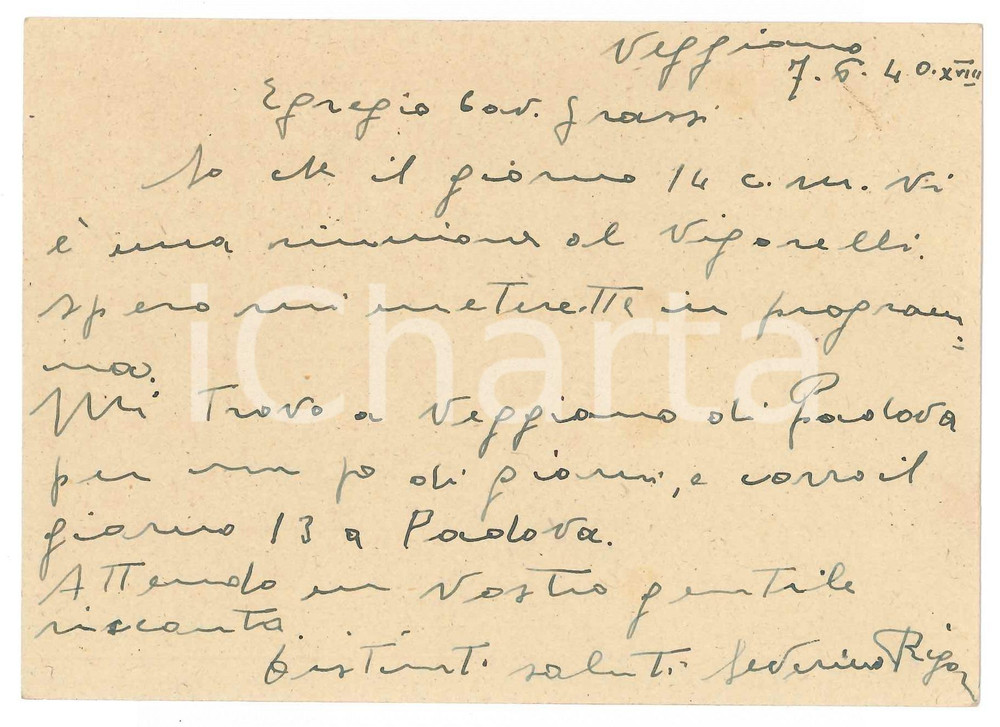 Veggiano
7. 6. 40. XVIII
Egregio Cav. Grassi
So che il giorno 14 c. m. vi
è una riunione al Vigorelli.
spero mi meterette in program=
ma.
Mi trovo a Veggiano di Padova
per un po di giorni, e corro il
giorno 13 a Padova.
Attendo un vostro gentile
Distinti saluti Severino Rigoni
iCharta